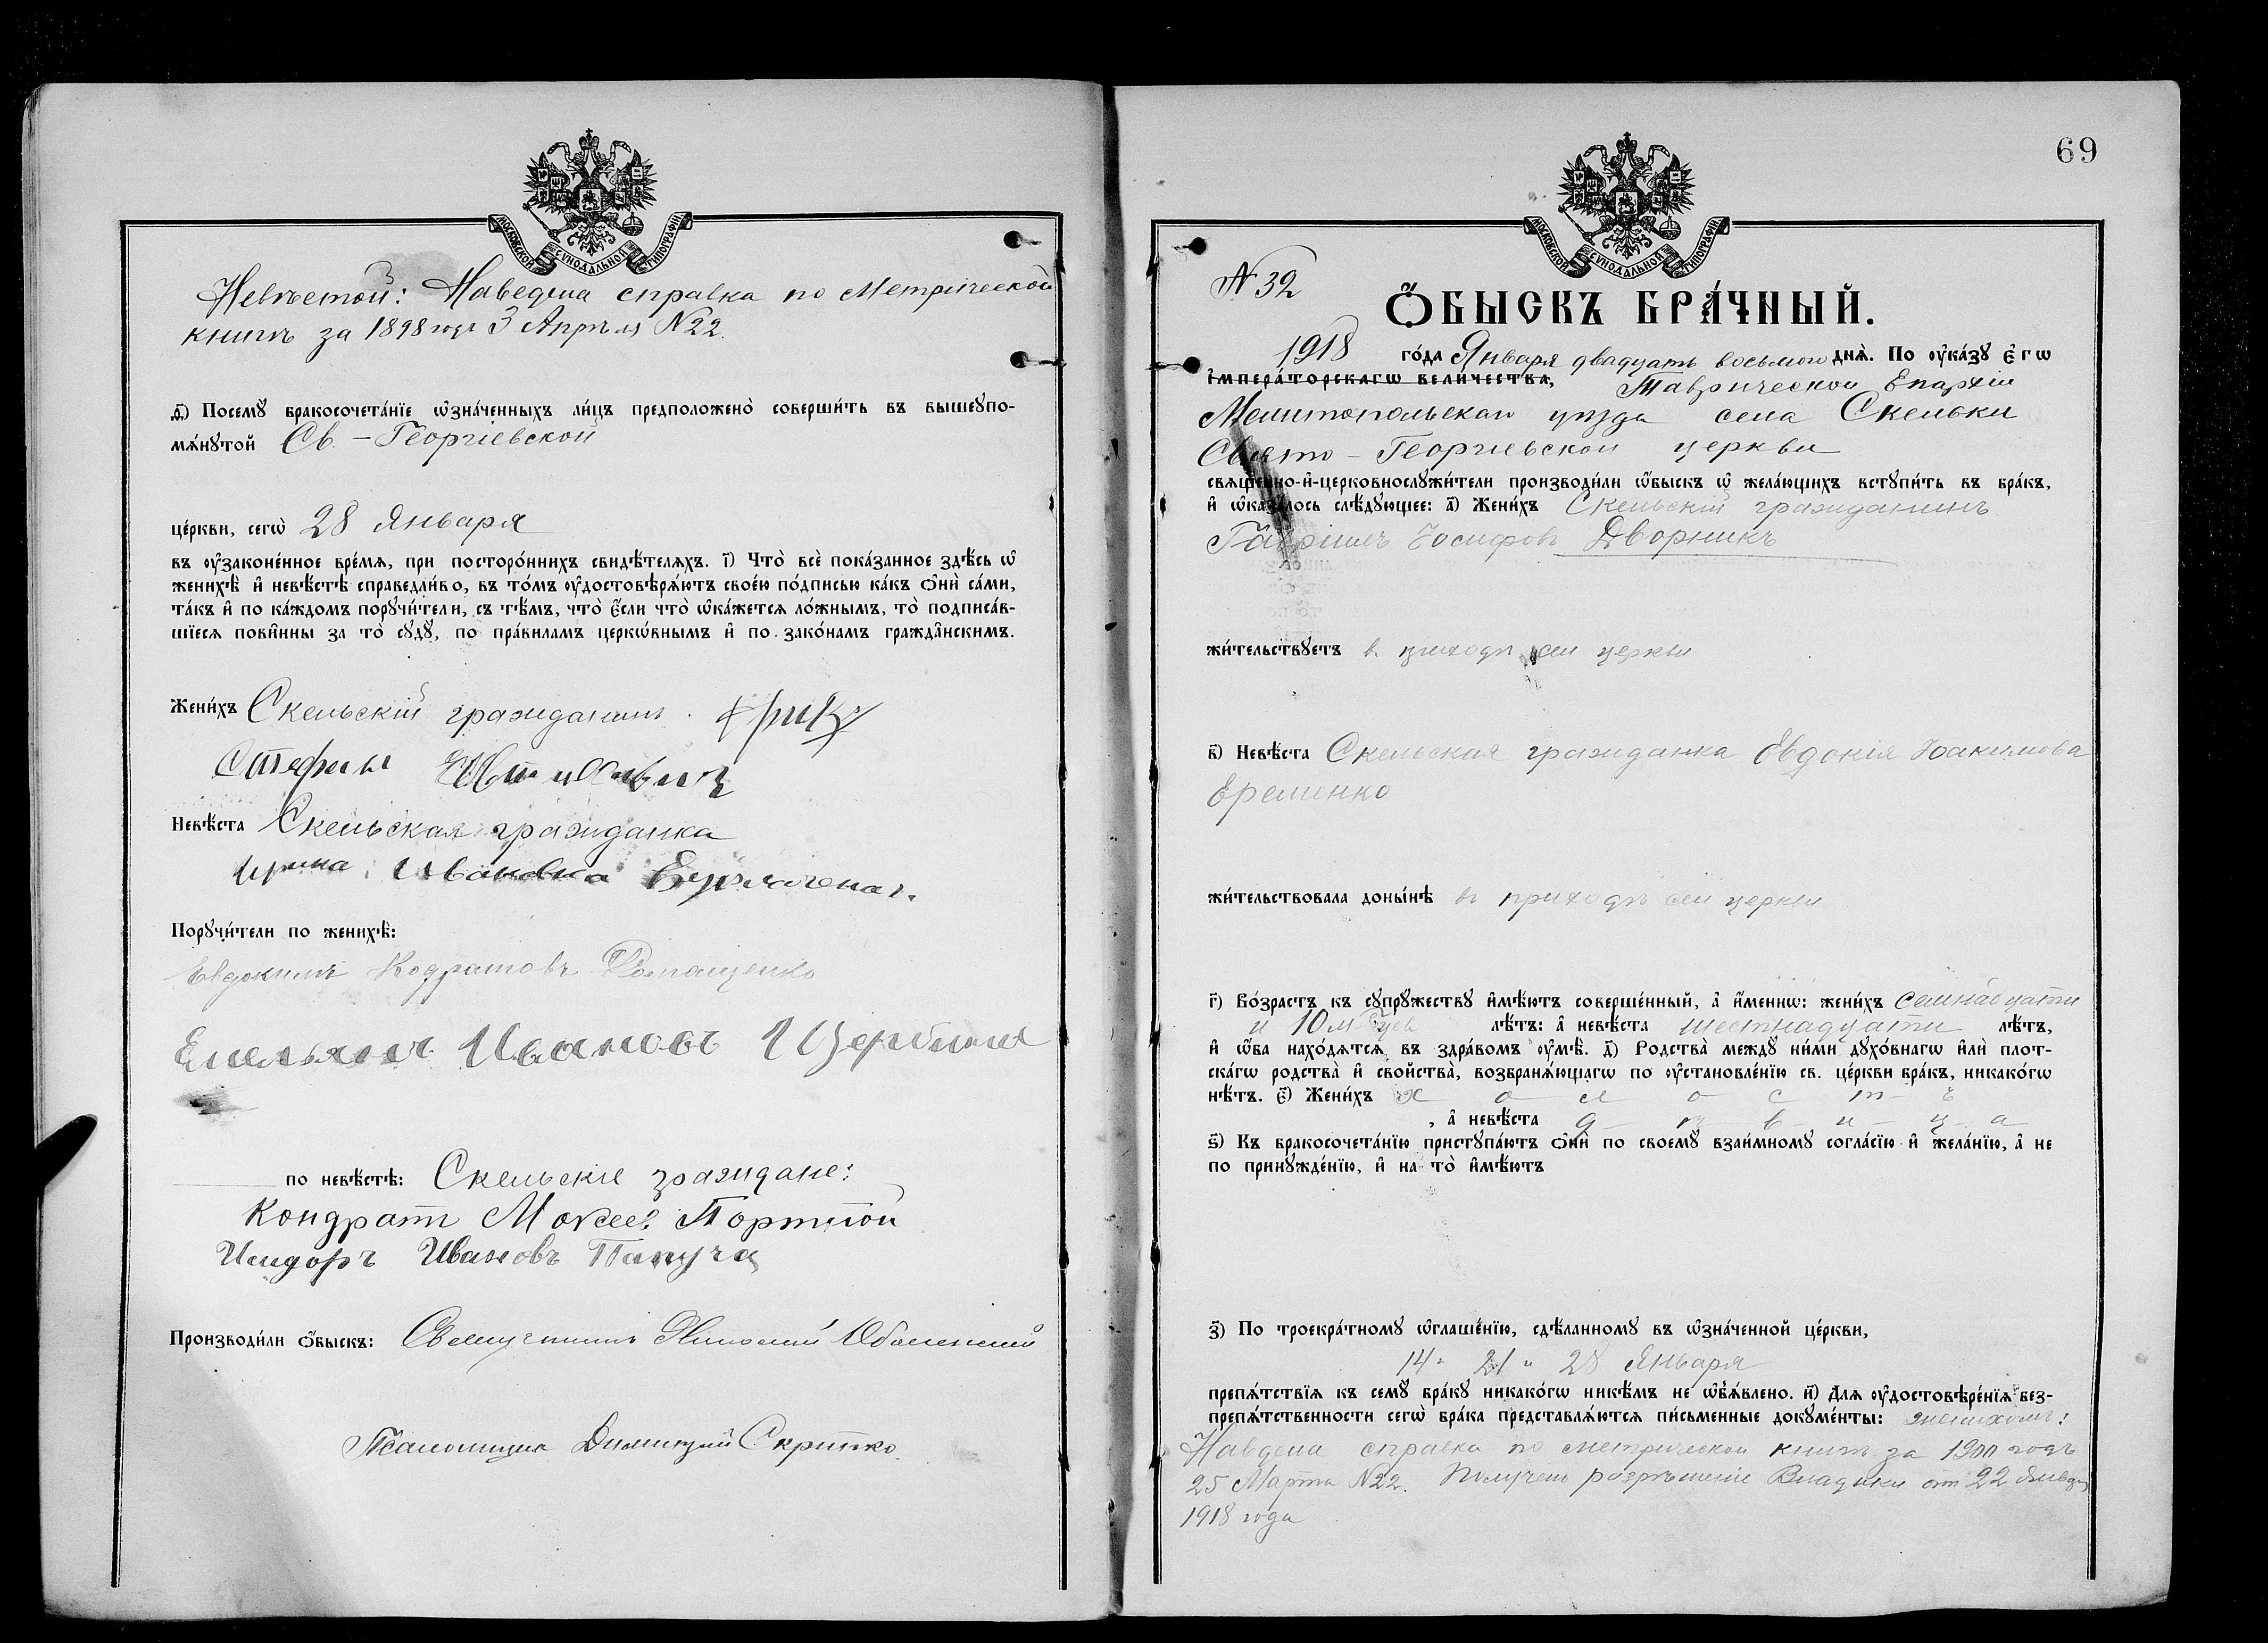 МОСКОВСКОЙ СѴНОДАЛЬНОЙ ТИПОГРАФІИ
Невѣстой: Наведена справка по Метрической
книгѣ за 1898 годъ 3 Апрѣля N22.
д҃) Посемꙋ̀ бракосочета́нїе ѡ҆зна́ченныхъ ли́цъ предположено̀ соверши́ть въ вышеꙋпо-
мѧ́нꙋтой Св.-Георгіевской
це́ркви, сегѡ̀ 28 Января
въ ᲂу҆зако́ненное вре́мѧ, при посторо́ннихъ свидѣ́телѧхъ. і҃) Что̀ всѐ пока́занное здѣ́сь ѡ҆
женихѣ̀ и҆ невѣ́стѣ справедли́во, въ то́мъ ᲂу҆достовѣрѧ́ютъ свое́ю по́дписью ка́къ ѻ҆нѝ са́ми,
та́къ и҆ по ка́ждомъ порꙋчи́тели, съ тѣ́мъ, что̀ є҆́сли что̀ ѡ҆ка́жетсѧ ло́жнымъ, то̀ подписа́в-
шїесѧ пови́нны за то̀ сꙋдꙋ̀, по пра́виламъ церкѡ́внымъ и҆ по зако́намъ гражда́нскимъ.
Жени́хъ Скельскій гражданинъ
Стефанъ
Невѣ́ста Скельская гражданка
Ирина Ивановна
Порꙋчи́тели по женихѣ̀:
Евдокимъ Кодратовъ
Емельян Ивановъ Щербина
по невѣ́стѣ: Скельскіе граждане:
Кондратъ Мокеев Портной
Исидоръ Ивановъ Папуча
Производи́ли ѻ҆́быскъ: Священникъ Николай Оболенскій
Псаломщикъ Димитрій Скрипко.
69
МОСКОВСКОЙ СѴНОДАЛЬНОЙ ТИПОГРАФІИ
N 32
Ѻ҆́БЫСКЪ БРА́ЧНЫЙ.
1918 го́да Января двадцать восьмого днѧ̀. По ᲂу҆ка́зꙋ є҆гѡ̀
і҆мпера́торскагѡ вели́чества, Таврической Епархіи
Мелитопольскаго уѣзда села Скельки
Свято-Георгіевской церкви
свѧще́нно-и҆-церковнослꙋжи́тели производи́ли ѡ҆́быскъ ѡ҆ жела́ющихъ встꙋпи́ть въ бра́къ,
и҆ ѡ҆каза́лось слѣ́дꙋющее: а҃) Жени́хъ Скельскій гражданинъ
Гавріилъ Іосифовъ Дворникъ
жи́тельствꙋетъ в приходѣ сей церкви
в҃) Невѣ́ста Скельская гражданка Евдокія Іоакимова
Еременко
жи́тельствовала доны́нѣ въ приходѣ сей церкви
г҃) Во́зрастъ къ сꙋпрꙋ́жествꙋ и҆мѣ́ютъ соверше́нный, а҆ и҆́меннѡ: жени́хъ семнадцати
и 10 м-цев лѣ́тъ: а҆ невѣ́ста шестнадцати лѣ́тъ,
и҆ ѻ҆́ба нахо́дѧтсѧ въ здра́вомъ ᲂу҆мѣ̀. д҃) Родства̀ междꙋ̀ ни́ми дꙋхо́внагѡ и҆лѝ плот-
ска́гѡ родства̀ и҆ сво́йства̀, возбранѧ́ющагѡ по ᲂу҆становле́нїю св. це́ркви бра́къ, никако́гѡ
нѣ́тъ. є҃) Жени́хъ х о л о с т ъ
, а҆ невѣ́ста д ѣ в и ц а
ѕ҃) Къ бракосочета́нїю пристꙋпа́ютъ ѻ҆нѝ по своемꙋ̀ взаи́мномꙋ согла́сїю и҆ жела́нїю, а҆ не
по принꙋжде́нїю, и҆ на то̀ и҆мѣ́ютъ
з҃) По троекра́тномꙋ ѡ҆глаше́нїю, сдѣ́ланномꙋ въ ѡ҆зна́ченной це́ркви,
14" 21 " 28 Января
препѧ́тствїѧ къ семꙋ̀ бра́кꙋ никако́гѡ никѣ́мъ не ѡ҆б̾ѧ́влено. и҃) Длѧ ᲂу҆достовѣре́нїѧ без-
препѧ́тственности сегѡ̀ бра́ка представлѧ́ютсѧ пи́сьменные докꙋме́нты: женихомъ:
Наведена справка по метрической книгѣ за 1900 годъ
25 Марта N22. Получено разрѣшеніе Владыки от 22 Января
1918 года